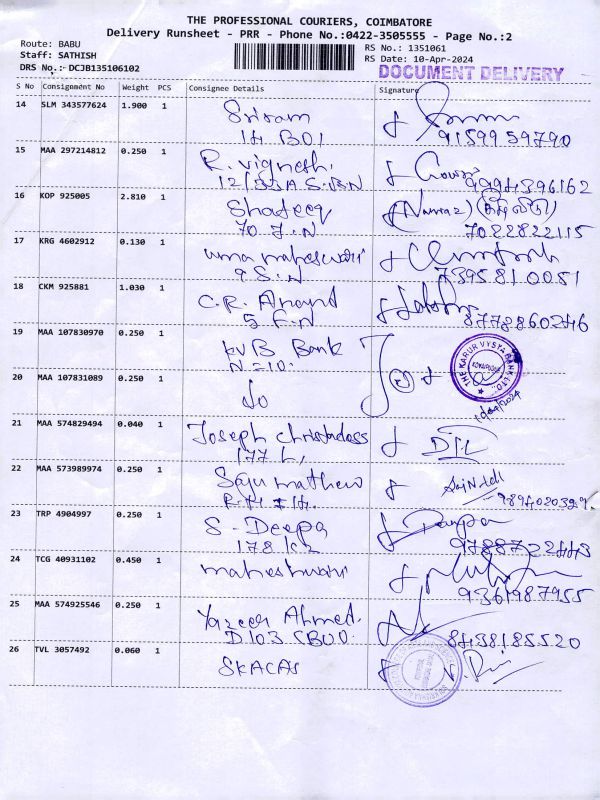 THE PROFESSIONAL COURIERS, COIMBATORE
Delivery Runsheet - PRR - Phone No.:0422-3505555 - Page No.:2
Route: BABU
Staff: SATHISH
DRS No.:- DCJB135106102
RS No.: 1351061
RS Date: 10-Apr-2024
DOCUMENT DELIVERY
S No Consignment No Weight PCS Consignee Details Signature
14 SLM 343577624 1.900 1 Sriram
14 B01 9159959790
15 MAA 297214812 0.250 1 R. Vignesh.
12/33A S.B.N 9994396162
16 KOP 925005 2.810 1 Shafeeq (Nawaz)
70 J.N 7022822115
17 KRG 4602912 0.130 1 uma maheswari
9 S.N 7395810081
18 CKM 925881 1.030 1 C.R. Anand
5 F.N 8778860246
19 MAA 107830970 0.250 1 KVB Bank
N=10. THE KARUR VYSYA BANK LTD.
20 MAA 107831089 0.250 1 do
10/04/2024
21 MAA 574829494 0.040 1 Joseph Christadoss
177 L,
22 MAA 573989974 0.250 1 Saju mathew
23 TRP 4904997 0.250 1 S. Deepa Deepa
9788722443
24 TCG 40931102 0.450 1 maheshwari
9361987955
25 MAA 574925546 0.250 1 Yazeer Ahmed.
D103 SBOO. 8438185520
26 TVL 3057492 0.060 1 SKACAS